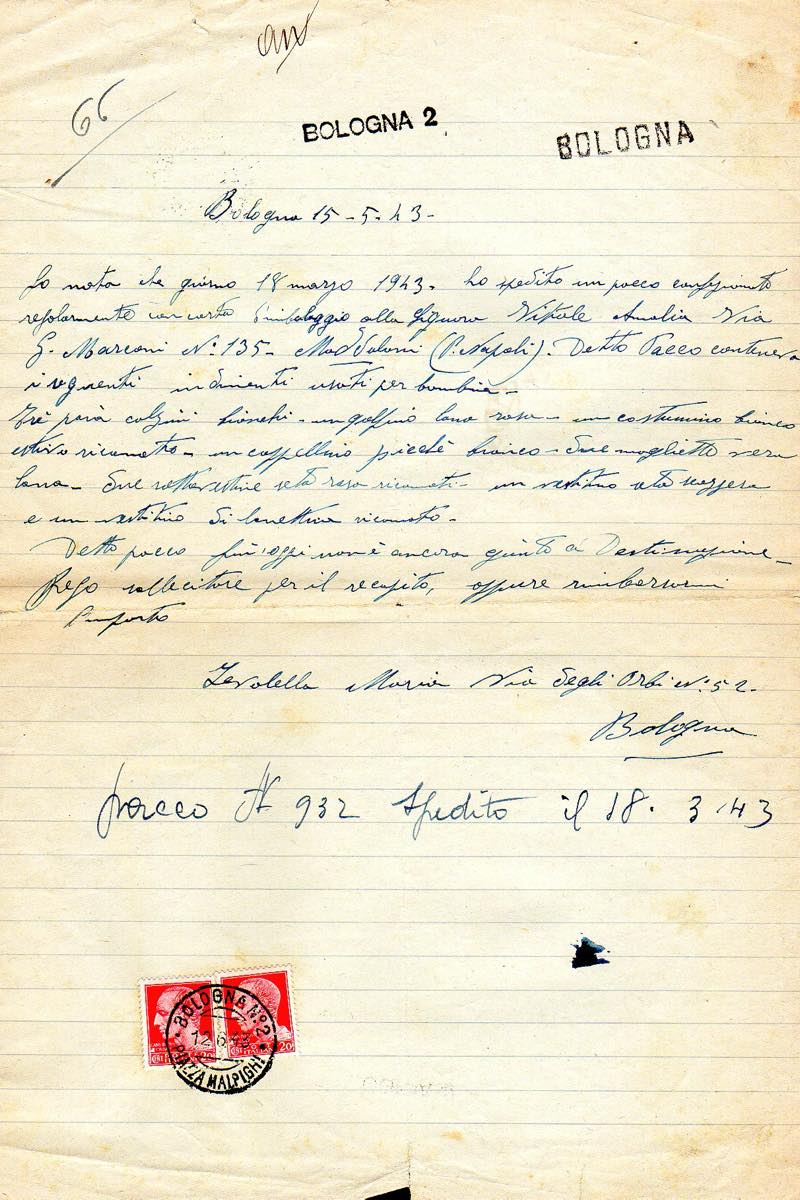 66
BOLOGNA 2
BOLOGNA
Bologna 15-5-43-
Fo nota che giorno 18 marzo 1943- ho spedito un pacco confezionato
regolarmente con carta d'imbalaggio alla Signora Vitale Amalia Via
G. Marconi N° 135- Maddaloni (P. Napoli). Detto Pacco conteneva
i seguenti indumenti usati per bambina-
Trè paia calzini bianchi- un golfino lana rosa- un costumino bianco
estivo ricamato- un cappellino picchè bianco- due magliette vera
lana- due sottovestine seta rosa ricamati- un vestitino seta
e un vestitino di lanettina ricamato-
Detto pacco fin'oggi non è ancora giunto a Destinazione-
Prego sollecitare per il recapito, oppure rimborsarmi
l'importo
Zevolella Maria Via Degli Orbi N° 52-
Bologna
pacco N 932 Spedito il 18. 3.43
BOLOGNA N.2
12.6.43
PIAZZA MALPIGHI
20